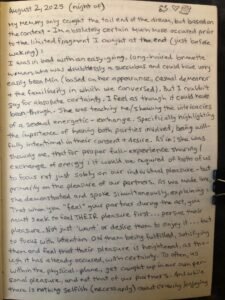 August 2, 2025 (night of)
My memory only caught the tail end of the dream, but based on
the context - I'm absolutely certain much more occured prior
to the limited fragment I caught at the end (just before
waking).
I was in bed with an easy-going, long-haired brunette
woman who was doubtlessly a succubus and could have very
easily been Mini (based on her appearance, casual demeanor
+ the familiarity in which we conversed). But I couldn't
say for absolute certainty. I feel as though it could have
been though. She was teaching me/showing the intricacies
of a sexual energetic-exchange. Specifically highlighting
the importance of having both parties involved, being with
fully intentional in their consent + desire. As is: she was
showing me, that for proper full-experience sharing/
exchange of energy: it would be required of both of us
to focus not just solely on our individual pleasure - but
primarily on the pleasure of our partners. As you would, love,
she demonstrated and spoke simultaneously, explaining:
"that when you 'feel' your partner during the act, you
must seek to feel THEIR pleasure first... pursue their
pleasure. Not just 'want' or desire them to enjoy it... but
to focus with intention ON them being fulfilled, satisfying
them and feel that their pleasure is heightened, as thou-
gh it has already occured, with certainty. To often, us
within the physical-plane, get caught up in our own per-
sonal pleasure, and not that of our partners. And while
there is nothing selfish (necessarily) about certainly enjoying